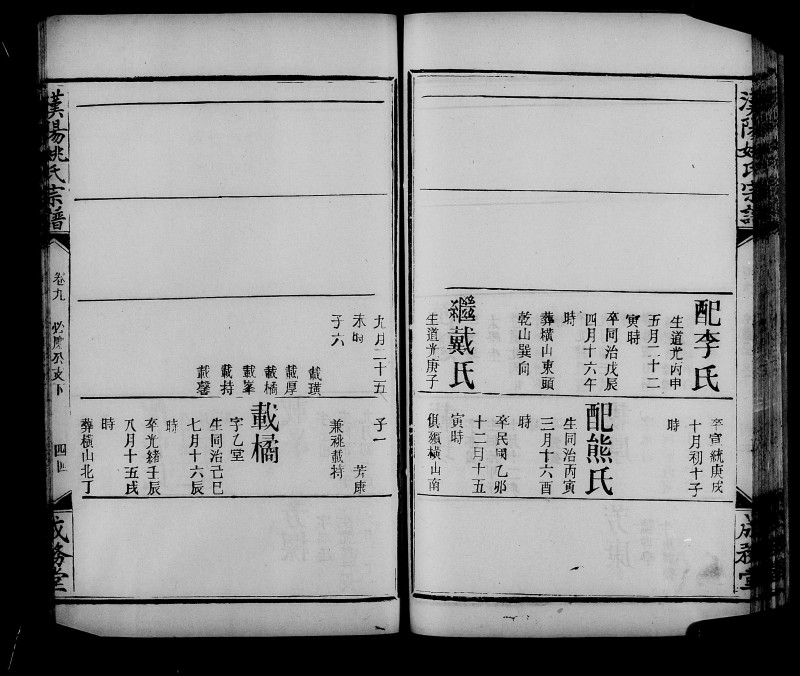 漢陽姚氏宗譜
配李氏
生道光丙申
五月二十二
寅時
卒同治戊辰
四月十六午
時
葬橫山東頭
乾山巽向
繼戴氏
生道光庚子
卒宣統庚戌
十月初十子
時
配熊氏
生同治丙寅
三月十六酉
時
卒民國乙卯
十二月十五
寅時
俱葬橫山南
成務堂
九月二十五
未時
子六
載璜
載厚
載橘
載峯
載持
載馨
子一
芳康
兼祧載持
載橘
字乙堂
生同治己巳
七月十六辰
時
卒光緒壬辰
八月十五戌
時
葬橫山北丁
漢陽姚氏宗譜
卷九
必慶公支下
四五
成務堂